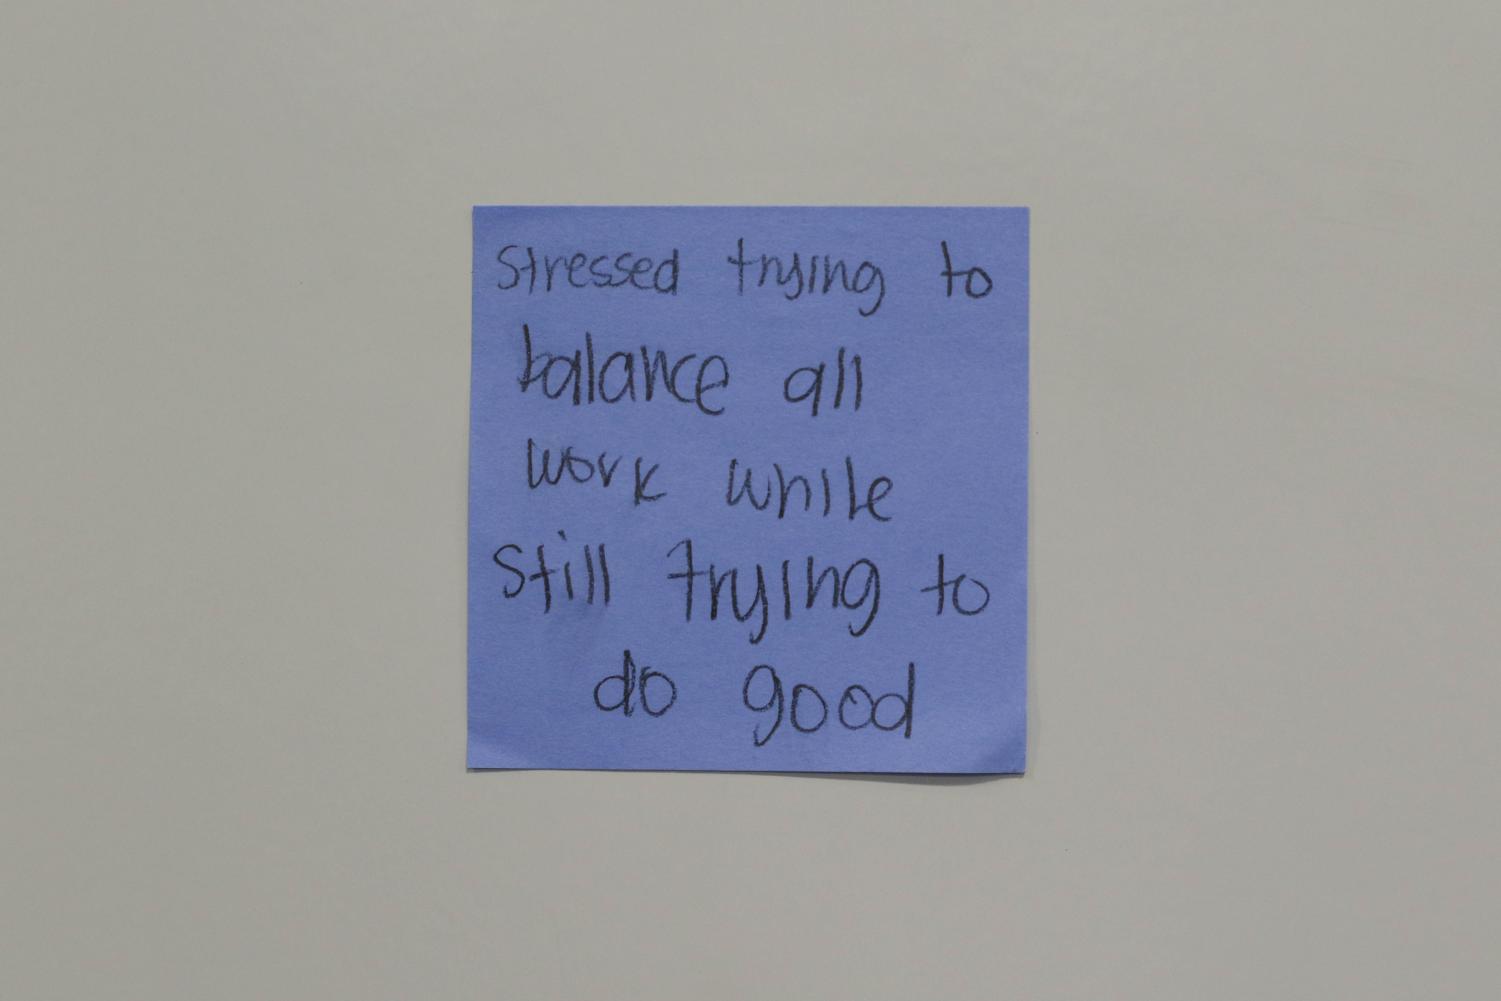 Stressed trying to
balance all
work while
still trying to
do good